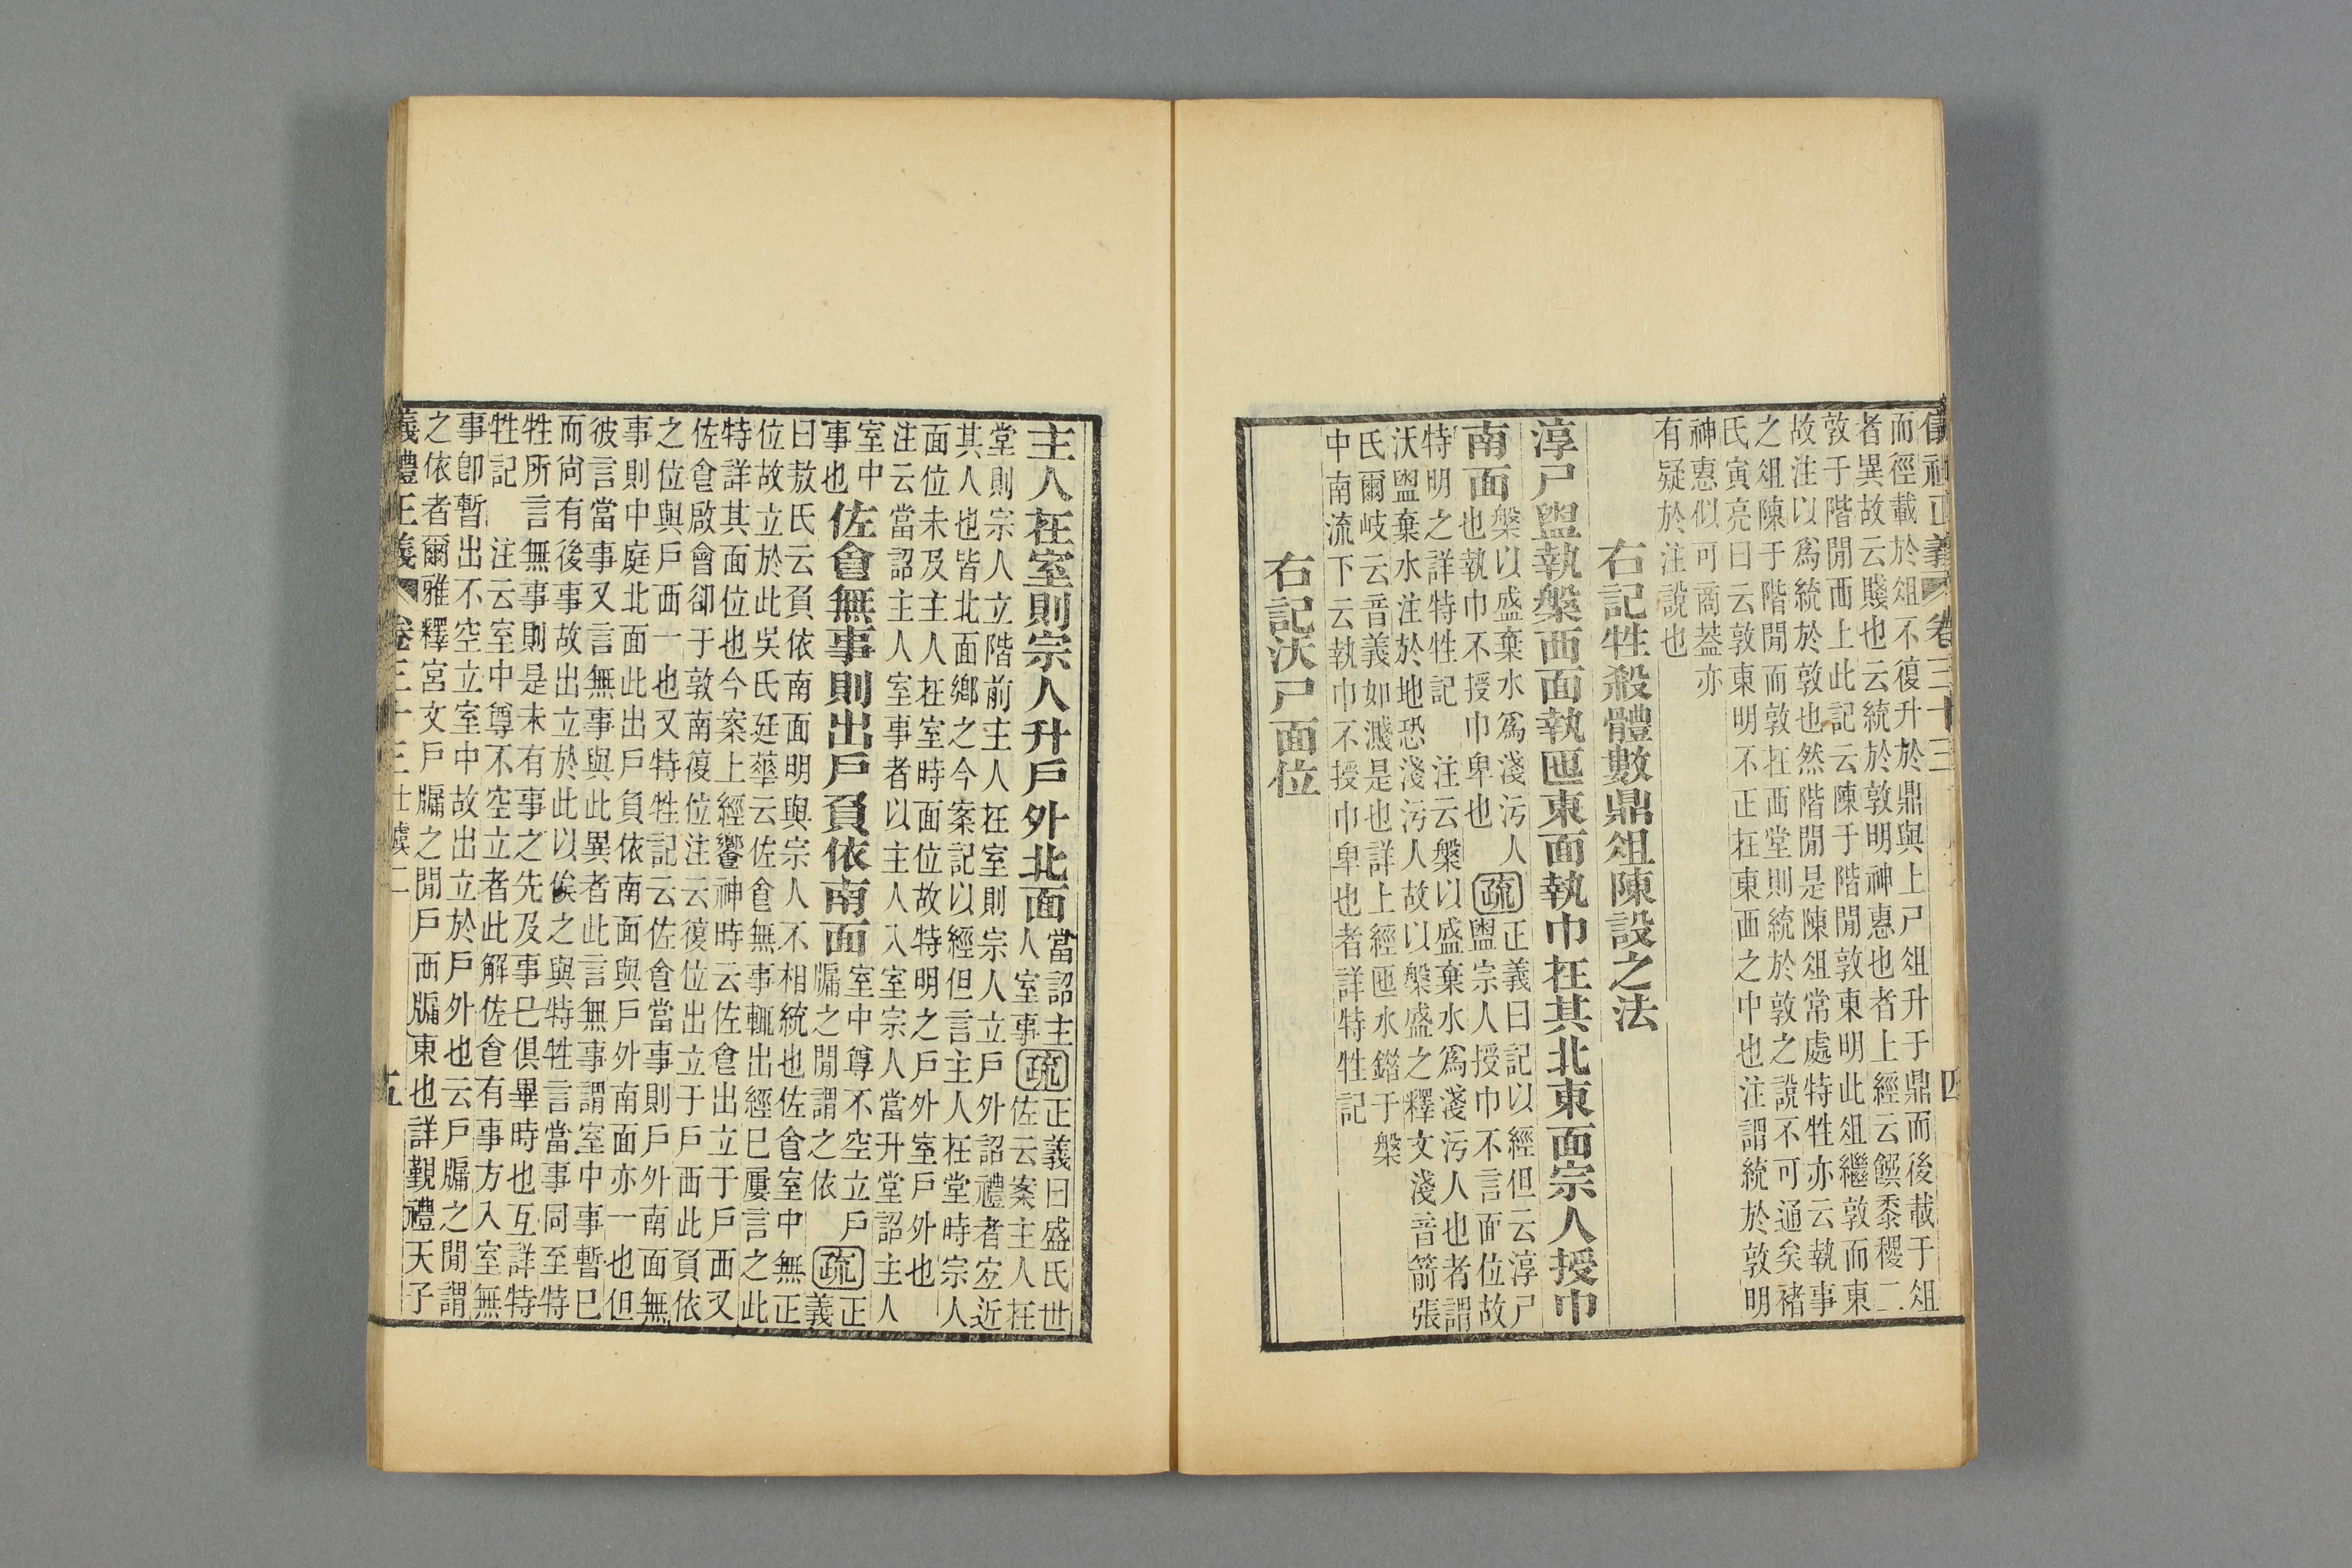 儀禮正義 卷三十三 四
而徑載於俎不復升於鼎與上尸俎升于鼎而後載于俎
者異故云賤也云統於敦明神惠也者上經云饌黍稷二
敦于階閒西上此記云陳于階閒敦東明此俎繼敦而東
故注以爲統於敦也然階閒是陳俎常處特牲亦云執事
之俎陳于階閒而敦在西堂則統於敦之說不可通矣褚
氏寅亮曰云敦東明不正在東西之中也注謂統於敦明
神惠似可商葢亦
有疑於注說也
右記牲殺體數鼎俎陳設之法
淳尸盥執槃西面執匜東面執巾在其北東面宗人授巾
南面
槃以盛棄水爲淺污人
也執巾不授巾卑也
疏
正義曰記以經但云淳尸
盥宗人授巾不言面位故
特明之詳特牲記 注云槃以盛棄水爲淺污人也者謂
沃盥棄水注於地恐淺污人故以槃盛之釋文淺音箭張
氏爾岐云音義如濺是也詳上經匜水錯于槃
中南流下云執巾不授巾卑也者詳特牲記
右記沃尸面位
主人在室則宗人升戶外北面
當詔主
人室事
疏
正義曰盛氏世
佐云案主人在
堂則宗人立階前主人在室則宗人立戶外詔禮者宐近
其人也皆北面鄉之今案記以經但言主人在堂時宗人
面位未及主人在室時面位故特明之戶外室戶外也
注云當詔主人室事者以主人入室宗人當升堂詔主人
室中
事也
佐食無事則出戶負依南面
室中尊不空立戶
牖之閒謂之依
疏
正
義
曰敖氏云負依南面明與宗人不相統也佐食室中無正
位故立於此吳氏廷華云佐食無事輒出經已屢言之此
特詳其面位也今案上經饗神時云佐食出立于戶西又
佐食啟會卻于敦南復位注云復位出立于戶西此負依
之位與戶西一也又特牲記云佐食當事則戶外南面無
事則中庭北面此出戶負依南面與戶外南面亦一也但
彼言當事又言無事與此異者此言無事謂室中事暫已
而尙有後事故出立於此以俟之與特牲言當事同至特
牲所言無事則是未有事之先及事已俱畢時也互詳特
牲記 注云室中尊不空立者此解佐食有事方入室無
事卽暫出不空立室中故出立於戶外也云戶牖之閒謂
之依者爾雅釋宮文戶牖之閒戶西牖東也詳覲禮天子
義禮正義 卷三十三 士虞二 五